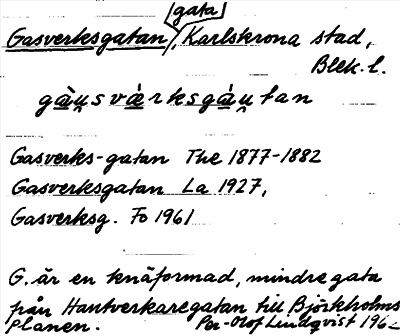 gata
Gasverksgatan, Karlskrona stad,
Blek. l.
gàu̯sværksgàu̯tan
Gasverks-gatan The 1877-1882
Gasverksgatan La 1927,
Gasverksg. Fo 1961
G. är en knäformad, mindre gata
från Hantverkaregatan till Björkholms
planen. Per-Olof Lindqvist 196